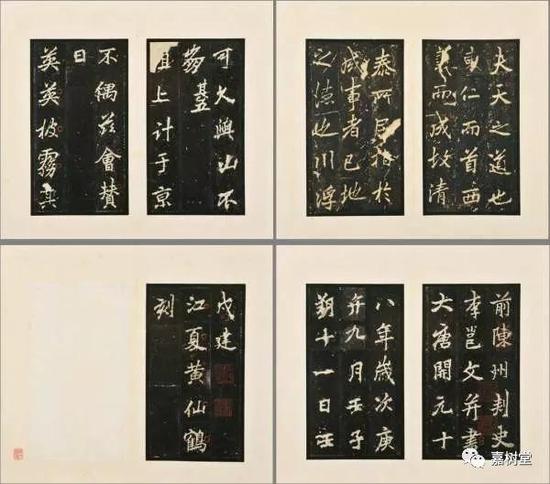 夫天之道也
東仁而首西
義而成故清
泰所居指於
成事者已地
之德也川浮
可久與山不
騫其五
上計于京
不偶茲會贊
曰
英英披霧
前陳州刺史
李邕文并書
大唐開元十
八年歲次庚
午九月壬子
朔十一日壬
戌建
江夏黃仙鶴
刻
嘉树堂